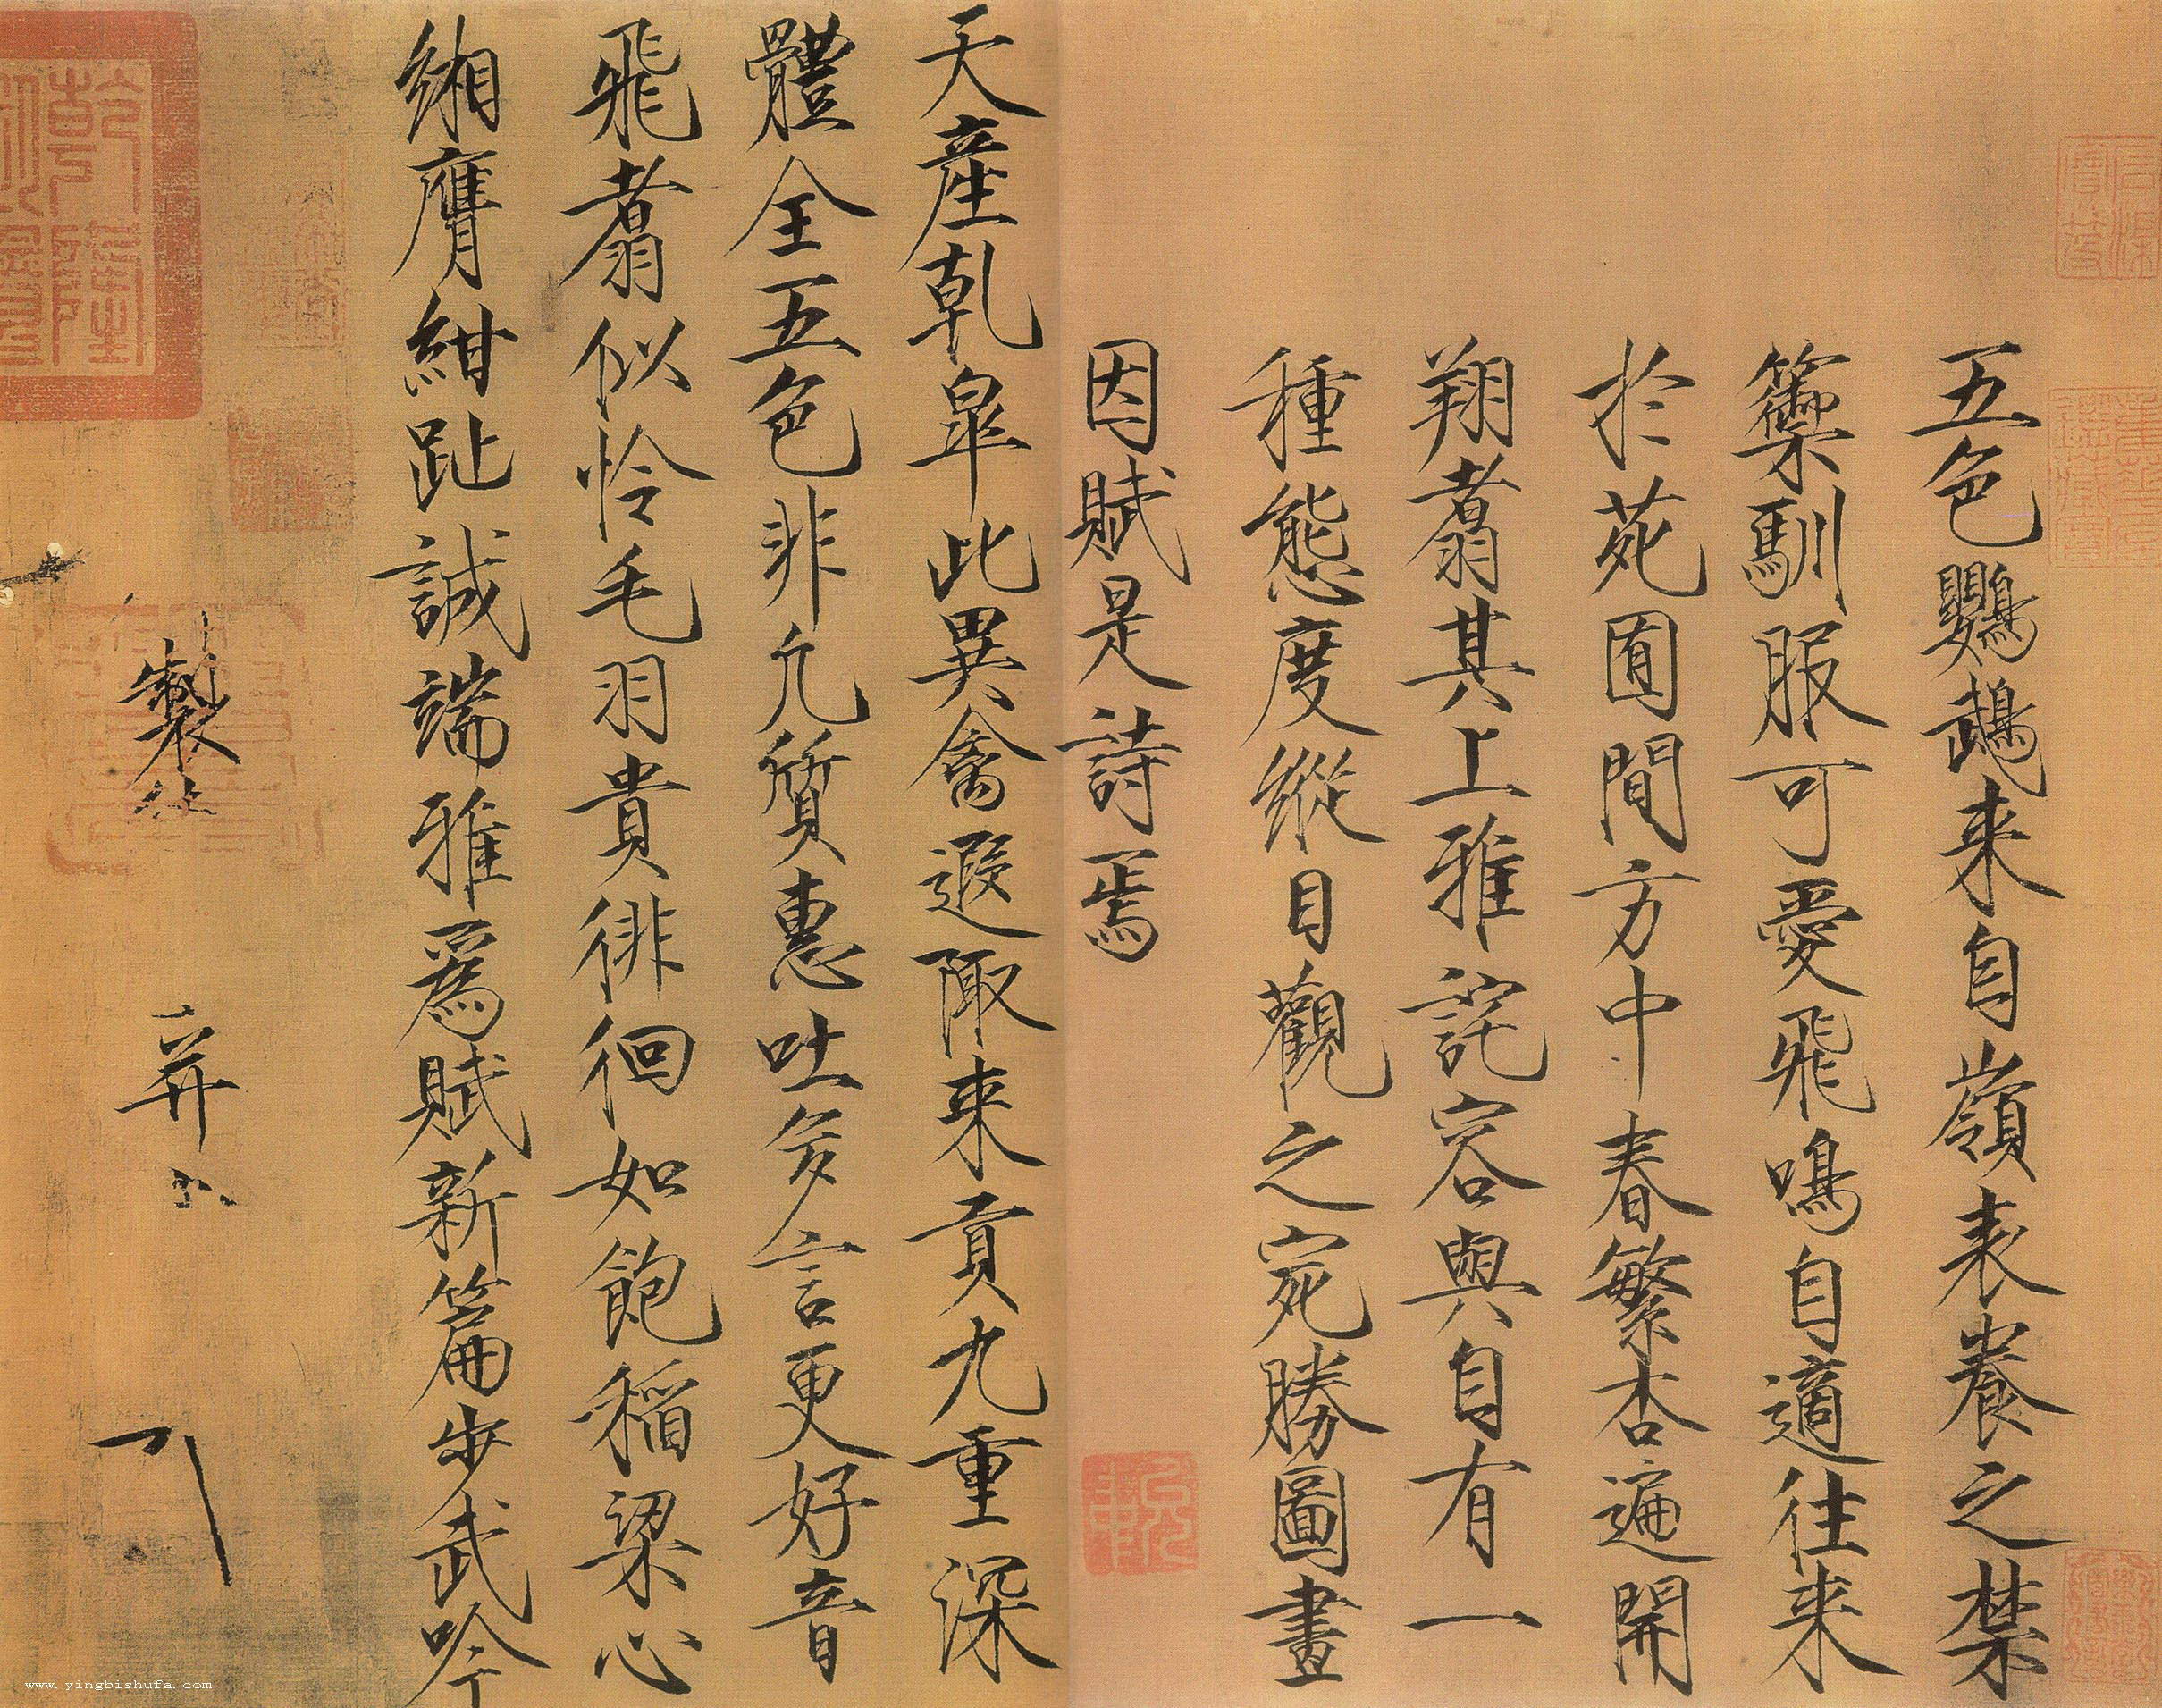 五色鸚鵡来自嶺表養之禁
籞馴服可愛飛鳴自適往来
於苑囿間方中春繁杏遍開
翔翥其上雅詫容與自有一
種態度縱目觀之宛勝圖畫
因賦是詩焉
天產乹皐此異禽遐陬来貢九重深
體全五色非凡質惠吐多言更好音
飛翥似怜毛羽貴徘徊如飽稲粱心
緗膺紺趾誠端雅為賦新篇步武吟
製 并
www.yingbishufa.com